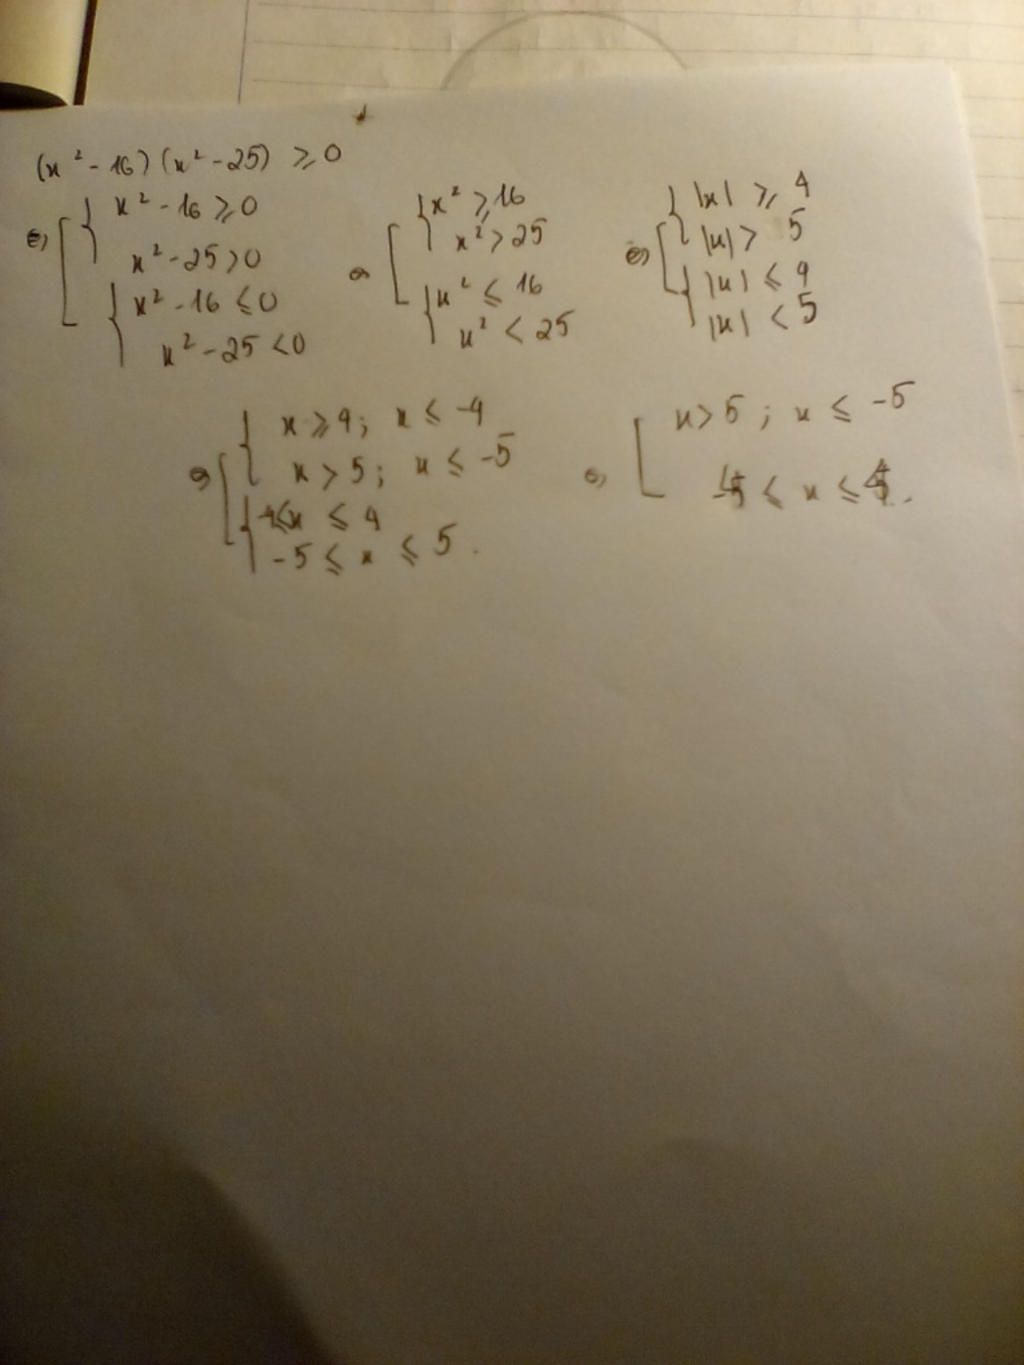 (x² - 16)(x² - 25) ⩾ 0
⇔ [ { x² - 16 ⩾ 0
x² - 25 > 0
{ x² - 16 ⩽ 0
x² - 25 < 0
⇔ [ { x² ⩾ 16
x² > 25
{ x² ⩽ 16
x² < 25
⇔ [ { |x| ⩾ 4
|x| > 5
{ |x| ⩽ 4
|x| < 5
⇔ [ { x ⩾ 4; x ⩽ -4
x > 5; x ⩽ -5
{ -4 ⩽ x ⩽ 4
-5 ⩽ x ⩽ 5.
⇔ [ x > 5; x ⩽ -5
-4 ⩽ x ⩽ 4.